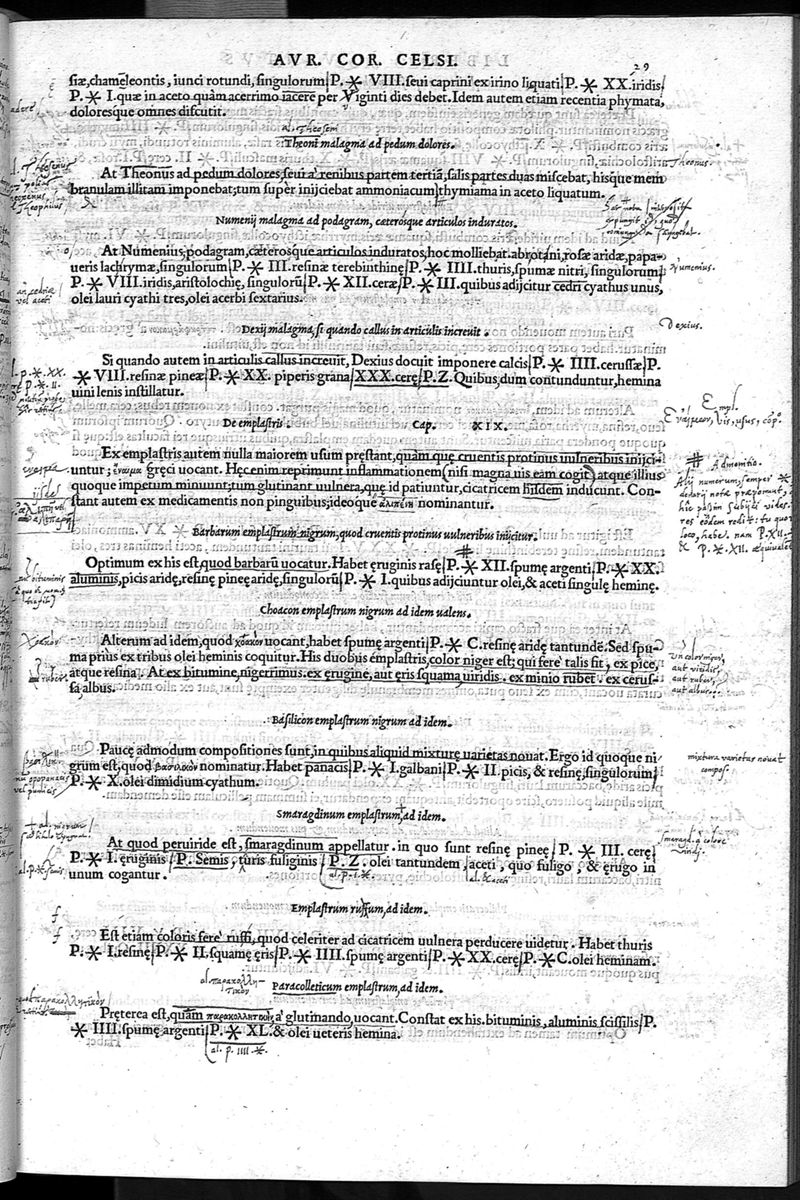 AVR. COR. CELSI.
29
siæ, chamęleontis, iunci rotundi, singulorum P. * VIII. seui caprini ex irino liquati P. * XX. iridis
P. * I. quæ in aceto quàm acerrimo iacere per Viginti dies debet. Idem autem etiam recentia phymata,
doloresque omnes discutit.
al. Theosem
Theoni malagma ad pedum dolores.
Theonus.
At Theonus ad pedum dolores, seui à renibus partem tertiã, salis partes duas miscebat, hisque mem
branulam illitam imponebat; tum super inijciebat ammoniacum thymiama in aceto liquatum.
Numenij malagma ad podagram, cæterosque articulos induratos.
At Numenius, podagram, cæterosque articulos induratos, hoc molliebat. abrotani, rosæ aridæ, papa-
ueris lachrymæ, singulorum P. * III. resinæ terebinthinę P. * IIII. thuris, spumæ nitri, singulorum
Numenius.
P. * VIII. iridis, aristolochię, singulorũ P. * XII. ceræ P. * III. quibus adijcitur cedri cyathus unus,
olei lauri cyathi tres, olei acerbi sextarius.
Dexij malagma, si quando callus in articulis increuit.
Dexius.
Si quando autem in articulis callus increuit, Dexius docuit imponere calcis P. * IIII. cerussæ P.
* VIII. resinæ pineæ P. * XX. piperis grana XXX. cerę P. Z. Quibus, dum contunduntur, hemina
uini lenis instillatur.
De emplastris. Cap. XIX.
Ex emplastris autem nulla maiorem usum pręstant, quàm quę cruentis protinus uulneribus inijci-
untur; ἔναιμα gręci uocant. Hęc enim reprimunt inflammationem (nisi magna uis eam cogit) atque illius
quoque impetum minuunt; tum glutinant uulnera, quę id patiuntur, cicatricem hisdem inducunt. Con-
stant autem ex medicamentis non pinguibus; ideoque ἀλιπαίνη nominantur.
Admonitio.
Barbarum emplastrum nigrum, quod cruentis protinus uulneribus inijcitur.
Optimum ex his est, quod barbarũ uocatur. Habet ęruginis rasę P. * XII. spumę argenti P. * XX.
aluminis, picis aridę, resinę pineę aridę, singulorũ P. * I. quibus adijciuntur olei, & aceti singulę heminę.
Choacon emplastrum nigrum ad idem ualens.
Alterum ad idem, quod χοακὸν uocant, habet spumę argenti P. * C. resinę aridę tantundẽ. Sed spu-
ma prius ex tribus olei heminis coquitur. His duobus emplastris, color niger est; qui ferè talis fit, ex pice,
atque resina. At ex bitumine, nigerrimus. ex ęrugine, aut ęris squama uiridis. ex minio ruber. ex cerus-
sa, albus.
Basilicon emplastrum nigrum ad idem.
Paucę admodum compositiones sunt, in quibus aliquid mixturę uarietas nouat. Ergo id quoque ni
grum est, quod βασιλικὸν nominatur. Habet panacis P. * I. galbani P. * II. picis, & resinę, singulorum
P. * X. olei dimidium cyathum.
mixtura varietas nouat
compos.
Smaragdinum emplastrum, ad idem.
At quod peruiride est, smaragdinum appellatur. in quo sunt resinę pineę P. * III. cerę
P. * I. ęruginis P. Semis, turis fuliginis P. Z. olei tantundem, aceti, quo fuligo, & ęrugo in
unum cogantur.
al. p. I. *.
al. & aceti
al. p. * semis
Emplastrum ruffum, ad idem.
Est etiam coloris ferè ruffi, quod celeriter ad cicatricem uulnera perducere uidetur. Habet thuris
P. * I. resinę P. * II. squamę ęris P. * IIII. spumę argenti P. * XX. cerę P. * C. olei heminam.
al. παρακολλη-
τικὸν
Paracolleticum emplastrum, ad idem.
Pręterea est, quàm παρακολλητικὴν, à glutinando, uocant. Constat ex his. bituminis, aluminis scissilis P.
* IIII. spumę argenti P. * XL. & olei ueteris hemina.
al. p. IIII. *.